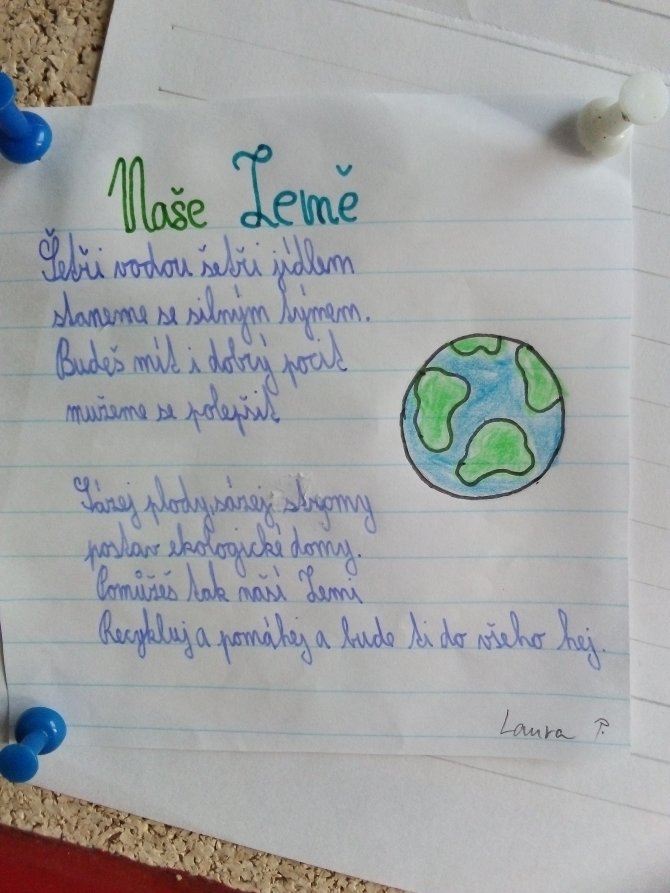 Naše Země
Šetři vodou šetři jídlem
staneme se silným týmem.
Budeš mít i dobrý pocit
mužeme se polepšit
Sázej plody, sázej stromy
postav ekologické domy.
Pomůžeš tak naší Zemi
Recykluj a pomáhej a bude ti do všeho hej.
Laura P.